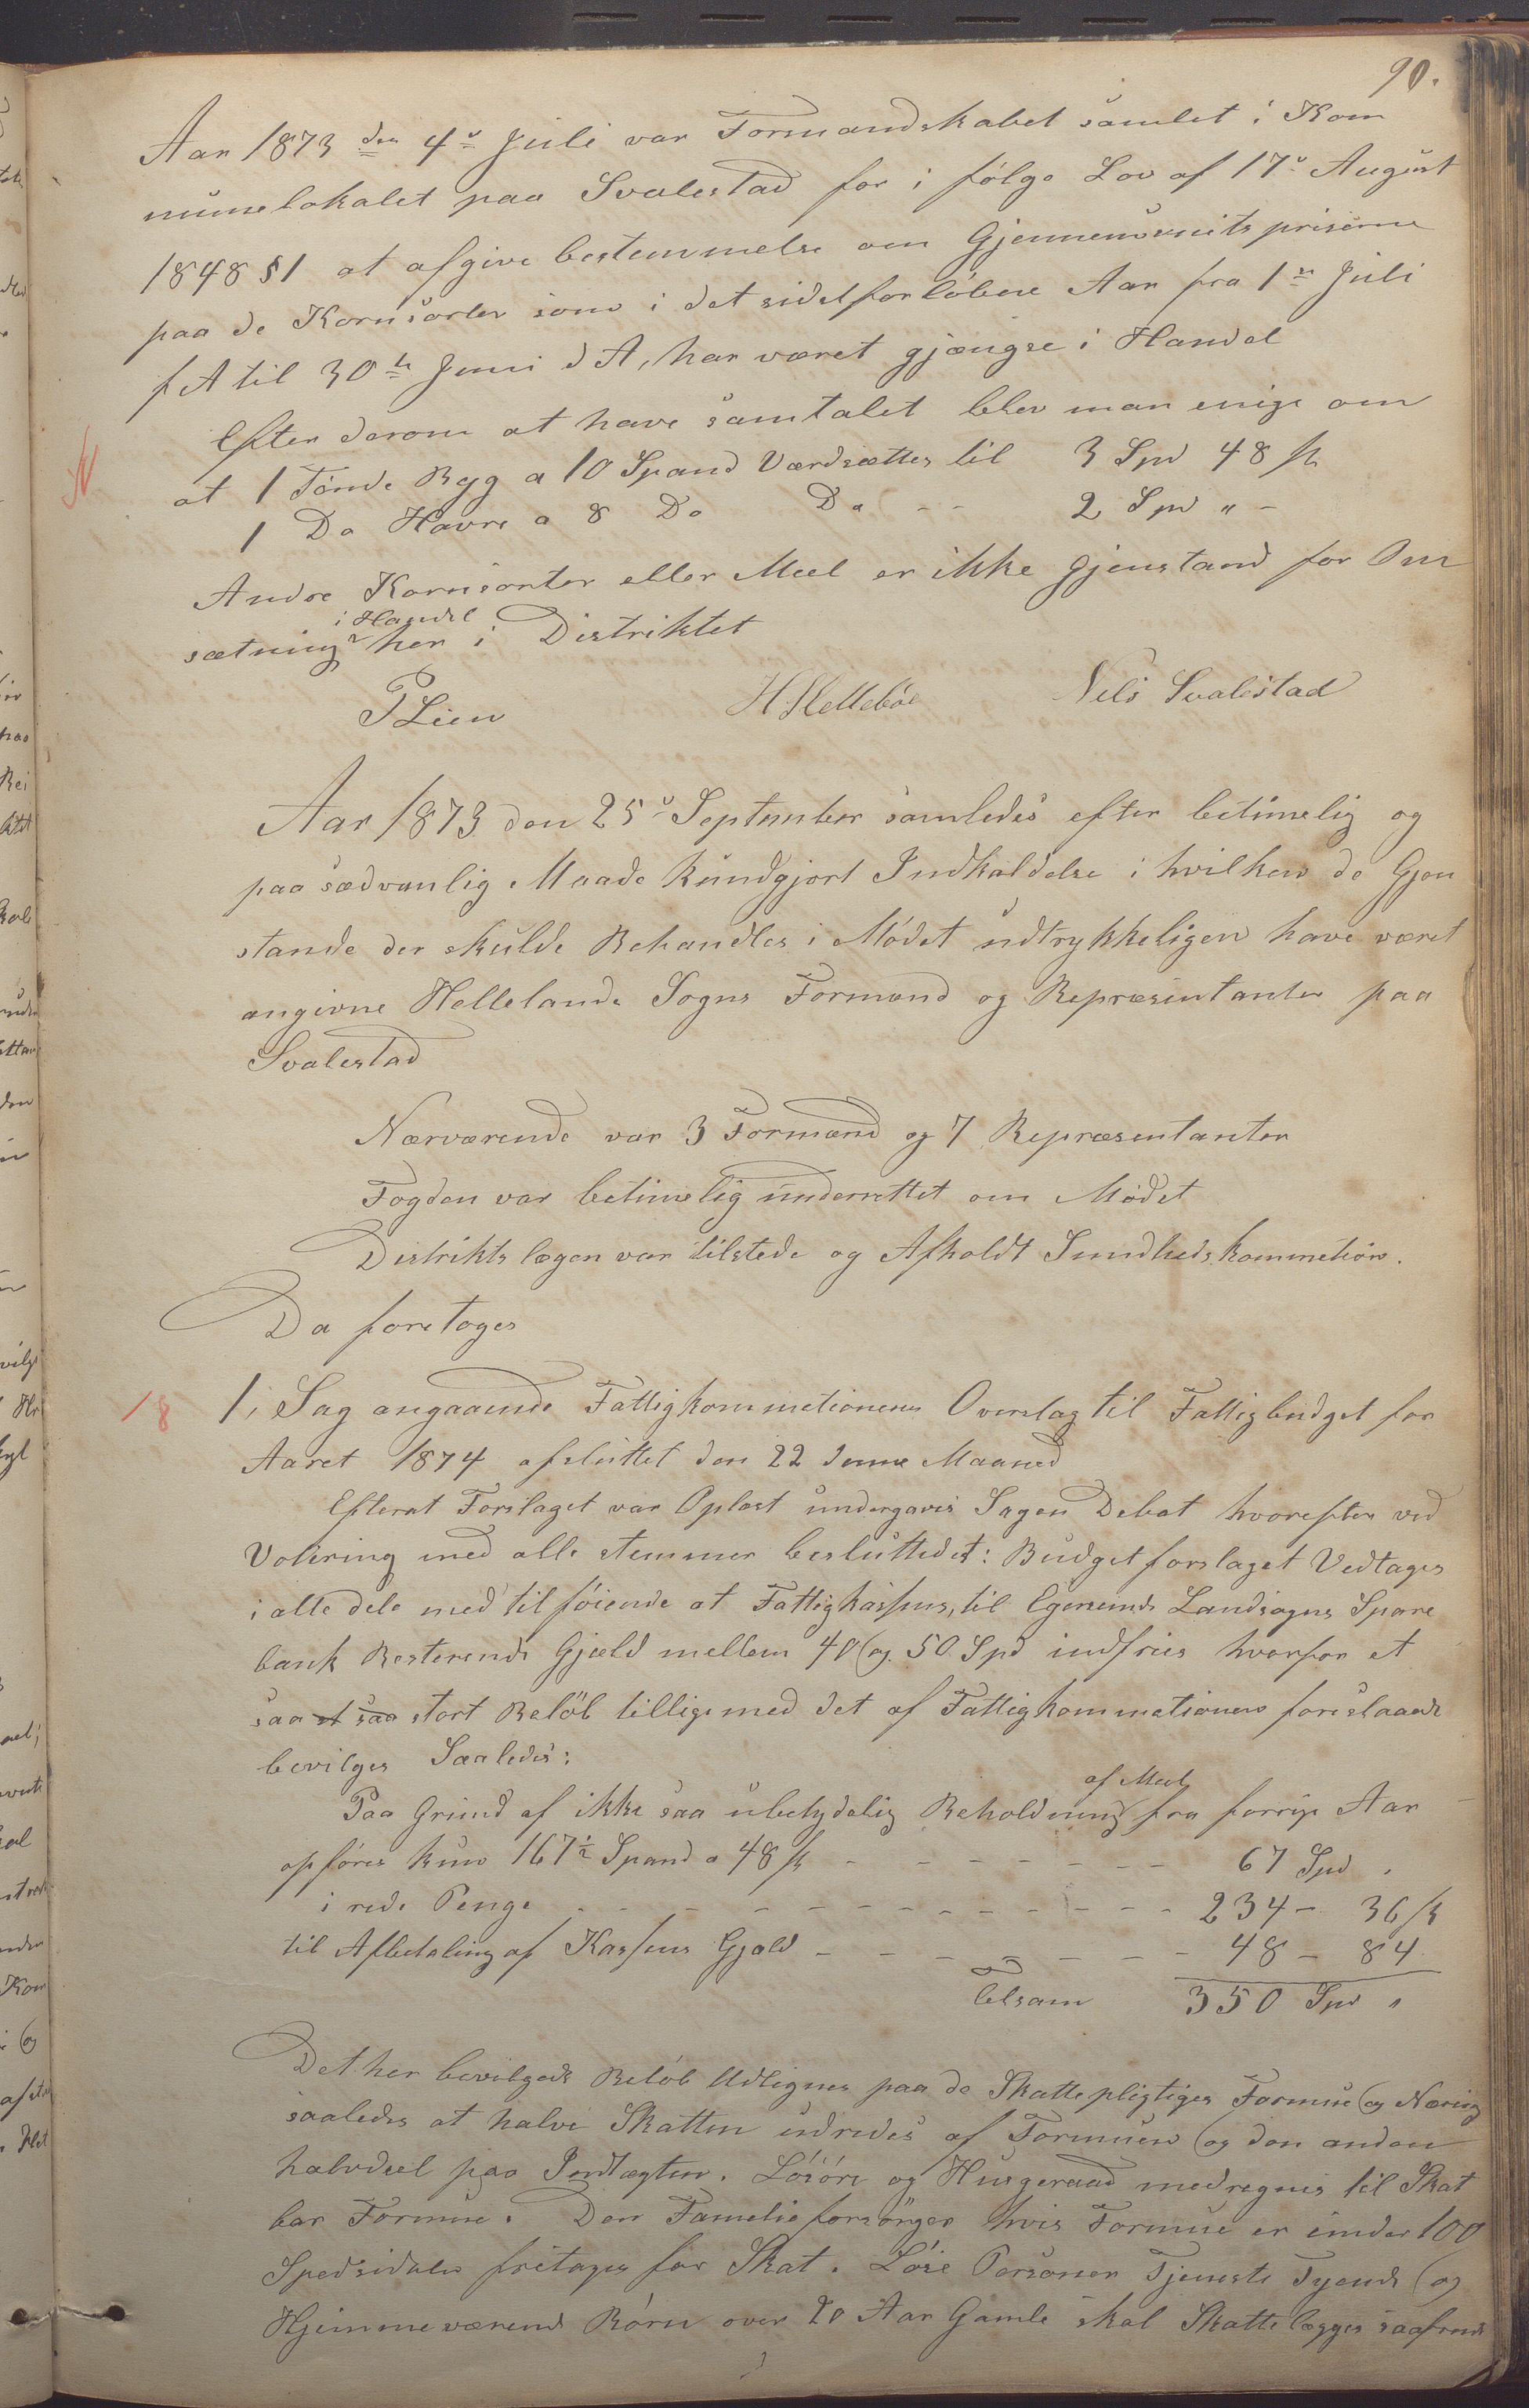 90.
Aar 1873 den 4de Juli var Formandskabet samlet i Kom
munelokalet paa Svalestad for i følge Lov af 17de August
1848 §1 at afgive bestemmelse om Gjennemsnitspriserne
paa de Kornsorter som i det sidstforløbne Aar fra 1ste Juli
f A til 30te Juni d A, har været gjængse i Handel
Efter derom at have samtalet blev man enige om
at 1 Tønde Byg a 10 Spand Værdsættes til 3 Spd 48 ß
1 Do Havre a 8 Do Do - - 2 Spd " -
Andre Kornsorter eller Meel er ikke gjenstand for Om
i Handel
sætning her i Distriktet
P Lien H Hellebøe Nils Svalestad
Aar 1873 den 25de September samledes efter betimelig og
paa sædvanlig Maade kundgjort Indkaldelse i hvilken de Gjen
stande der skulde Behandles i Mødet udtrykkeligen have været
angivne Hellelands Sogns Formænd og Repræsentanter paa
Svalestad
Nærværende var 3 Formænd og 7 Repræsentanter
Fogden var betimelig underrettet om Mødet
Distriktslægen var tilstede og Afholdt Sundhedskommetion.
Da foretoges
18 1, Sag angaaende Fattigkommetionens Overslag til Fattigbudget for
Aaret 1874 afsluttet den 22 denne Maaned
Efterat Forslaget var Oplæst undergaves Sagen Debat hvorefter ved
Votering med alle stemmer besluttedet: Budgetforslaget Vedtages
i alle dele med tilføiende at Fattigkassens, til Egersunds Landsogns Spare
bank Resterende Gjæld mellem 40 og 50 Spd indfries hvorfor et
saa et saa stort Beløb tilligemed det af Fattigkommetionen foreslaaede
bevilges Saaledes:
af Meel
Paa Grund af ikke saa ubetydelig Beholdning fra forrige Aar
opføres kun 167½ Spand a 48 ß - - - - - - - 67 Spd "
i rede Penge - - - - - - - - - - - - - 234 - 36 ß
til Afbetaling af Kassens Gjæld - - - - - - - 48 - 84
Tilsam 350 Spd "
Det her bevilgede Beløb Udlignes paa de Skattepligtiges Formue og Næring
saaledes at halve Skatten udredes af Formuen og den anden
halvdeel paa Indtægten. Løsøre og Husgeraad medregnes til Skat
bar Formue. Den Familieforsørger hvis Formue er under 100
Spedsidaler fritages for Skat. Løse Personer Tjeneste Tyende og
Hjemmeværende Børn over 20 Aar Gamle skal Skattelægges saafremt